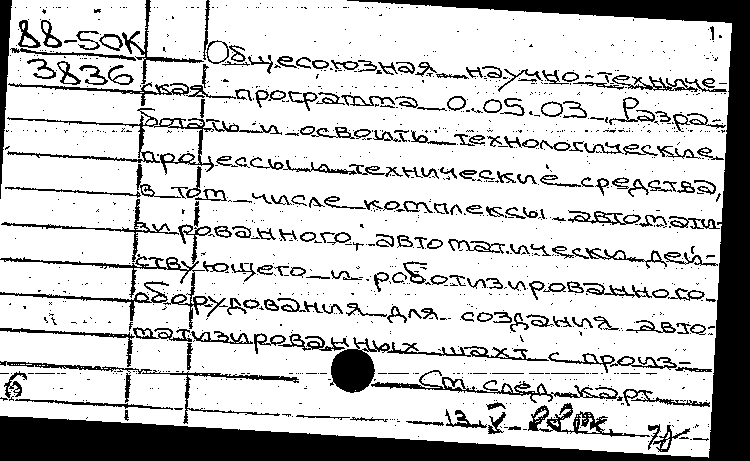 1.
88-50К
3836
Общесоюзная научно-техниче-
ская программа 0.05.03 „Разра-
ботать и освоить технологические
процессы и технические средства,
в том числе комплексы автомати-
зированного, автоматически дей-
ствующего и роботизированного
оборудования для создания авто-
матизированных шахт с произ-
См. след. карт.
6
13.V